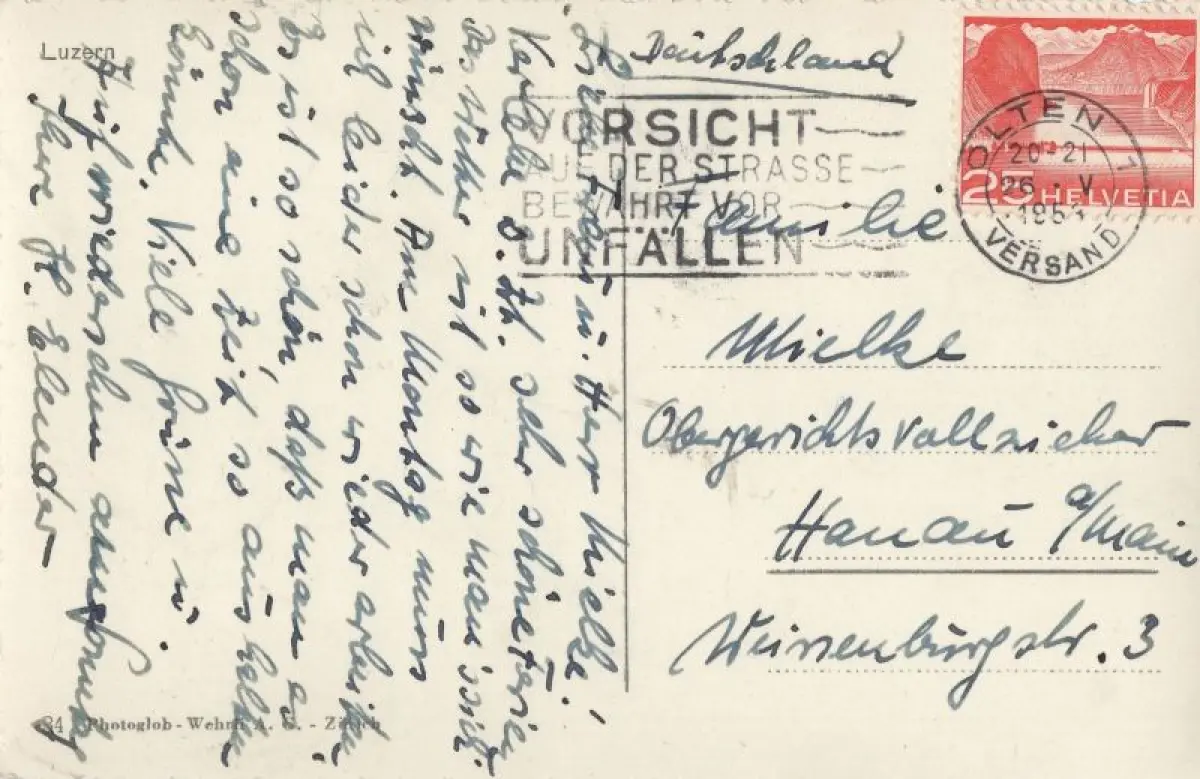 Luzern
Liebe Frau u. Herr Mielke!
Verlebe z. Zt. sehr schöne Ferien
das Wetter ist so wie man sich's
wünscht. Am Montag muss
ich leider schon wieder arbeiten
Es ist so schön, daß man es
schon eine Zeit so aushalten
könnte. Viele Grüße u.
Auf wiedersehen
Ihre H.
Deutschland
VORSICHT
AUF DER STRASSE
BEWAHRT VOR
UNFÄLLEN
OLTEN 1
20-21
26. V
195
VERSAND
25 HELVETIA
Familie
Mielke
Obergerichtsvollzieher
Hanau a/Main
Weissenburgstr. 3
Photoglob-Wehrli A. G. - Zürich